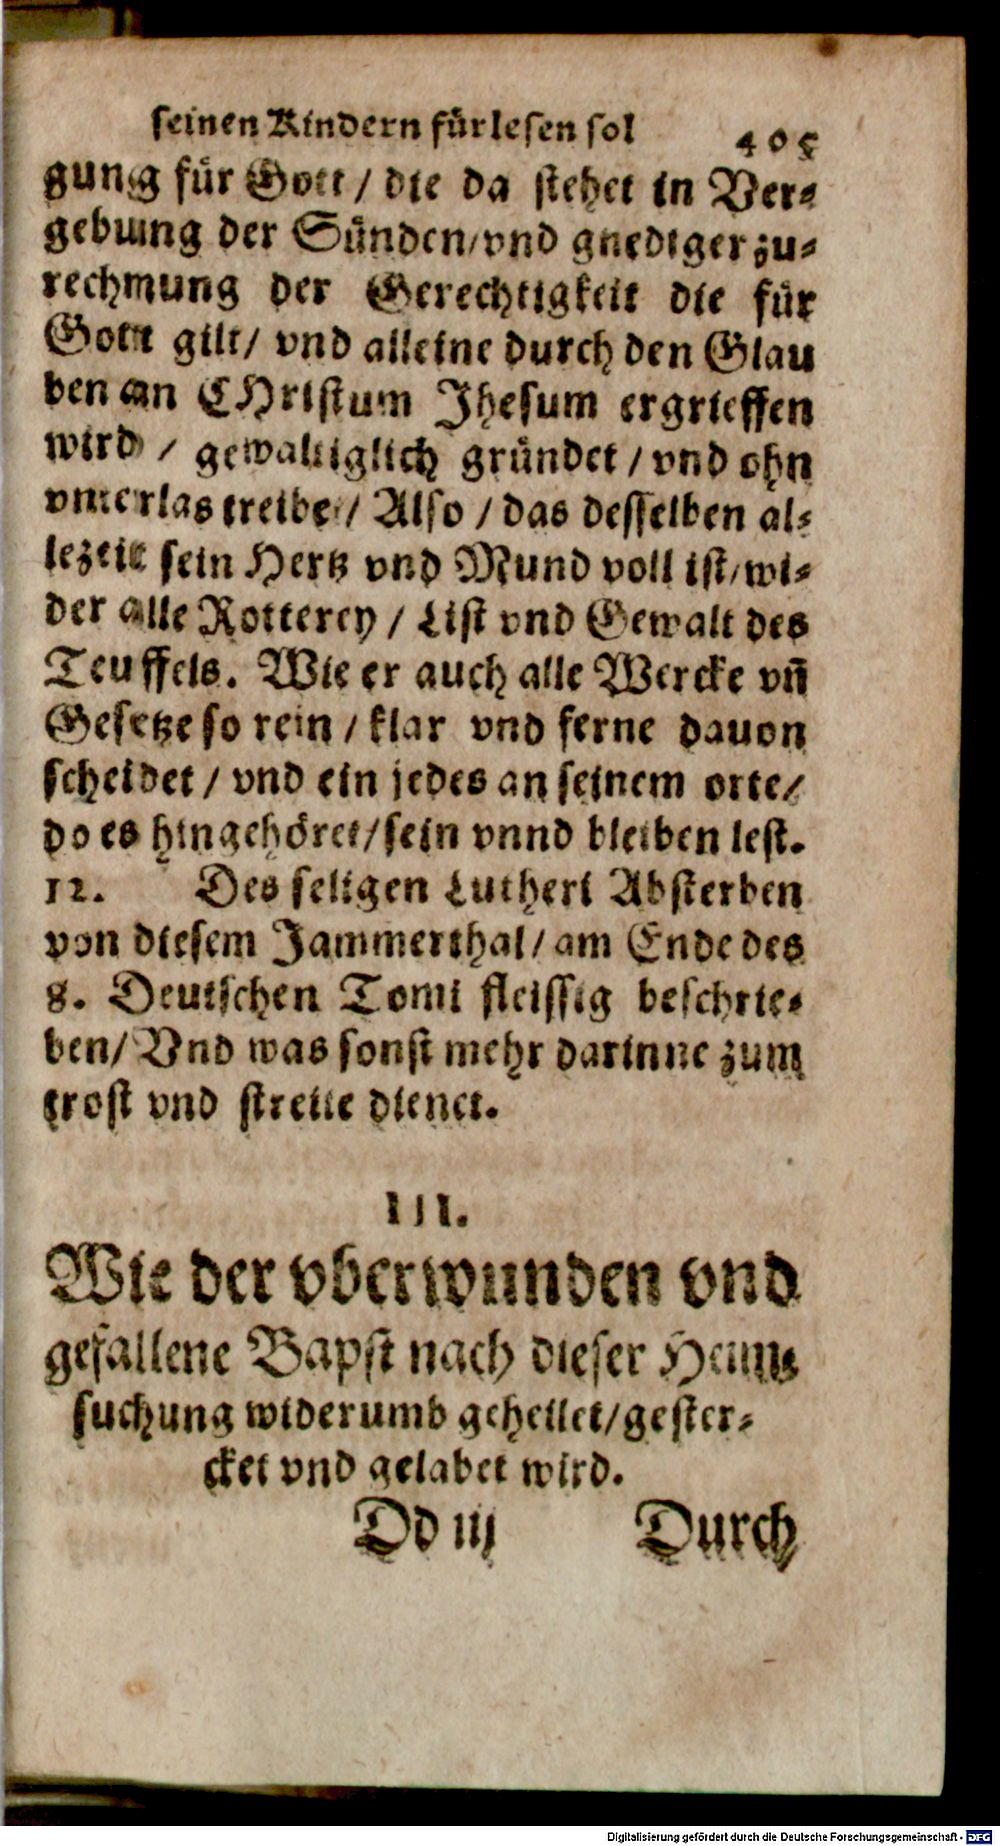 seinen Kindern fürlesen sol 405
gung für Gott / die da stehet in Ver⸗
gebung der Sünden / vnd gnediger zu⸗
rechnung der Gerechtigkeit die für
Gott gilt / vnd alleine durch den Glau
ben an CHristum Jhesum ergrieffen
wird / gewaltiglich gründet / vnd ohn
vnterlas treibet / Also / das desselben al⸗
lezeit sein Hertz vnd Mund voll ist / wi⸗
der alle Rotterey / List vnd Gewalt des
Teuffels. Wie er auch alle Wercke vñ
Gesetze so rein / klar vnd ferne dauon
scheidet / vnd ein jedes an seinem orte /
do es hingehöret / sein vnnd bleiben lest.
12. Des seligen Lutheri Absterben
von diesem Jammerthal / am Ende des
8. Deutschen Tomi fleissig beschrie⸗
ben / Vnd was sonst mehr darinne zum
trost vnd streite dienet.
III.
Wie der vberwunden vnd
gefallene Bapst nach dieser Heim⸗
suchung widerumb geheilet / gester⸗
cket vnd gelabet wird.
Dd iij Durch
Digitalisierung gefördert durch die Deutsche Forschungsgemeinschaft - DFG